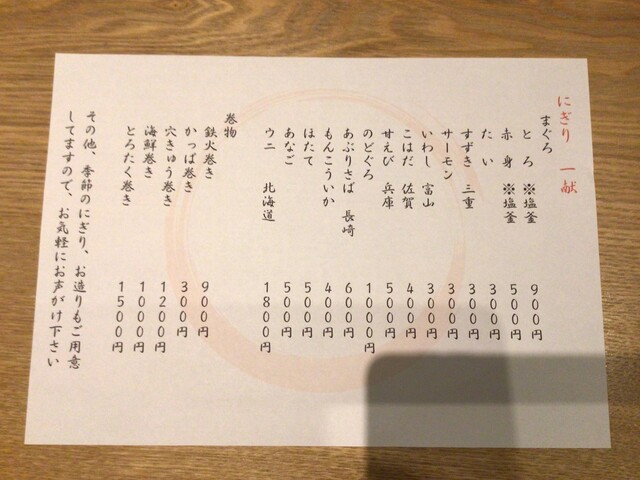 にぎり 一献
まぐろ
とろ ※塩釜 900円
赤身 ※塩釜 500円
たい 300円
すずき 三重 300円
サーモン 300円
いわし 富山 300円
こはだ 佐賀 400円
甘えび 兵庫 500円
のどぐろ 1000円
あぶりさば 長崎 600円
もんこういか 400円
ほたて 500円
あなご 500円
ウニ 北海道 1800円
巻物
鉄火巻き 900円
かっぱ巻き 300円
穴きゅう巻き 1200円
海鮮巻き 1000円
とろたく巻き 1500円
その他、季節のにぎり、お造りもご用意
してますので、お気軽にお声がけ下さい